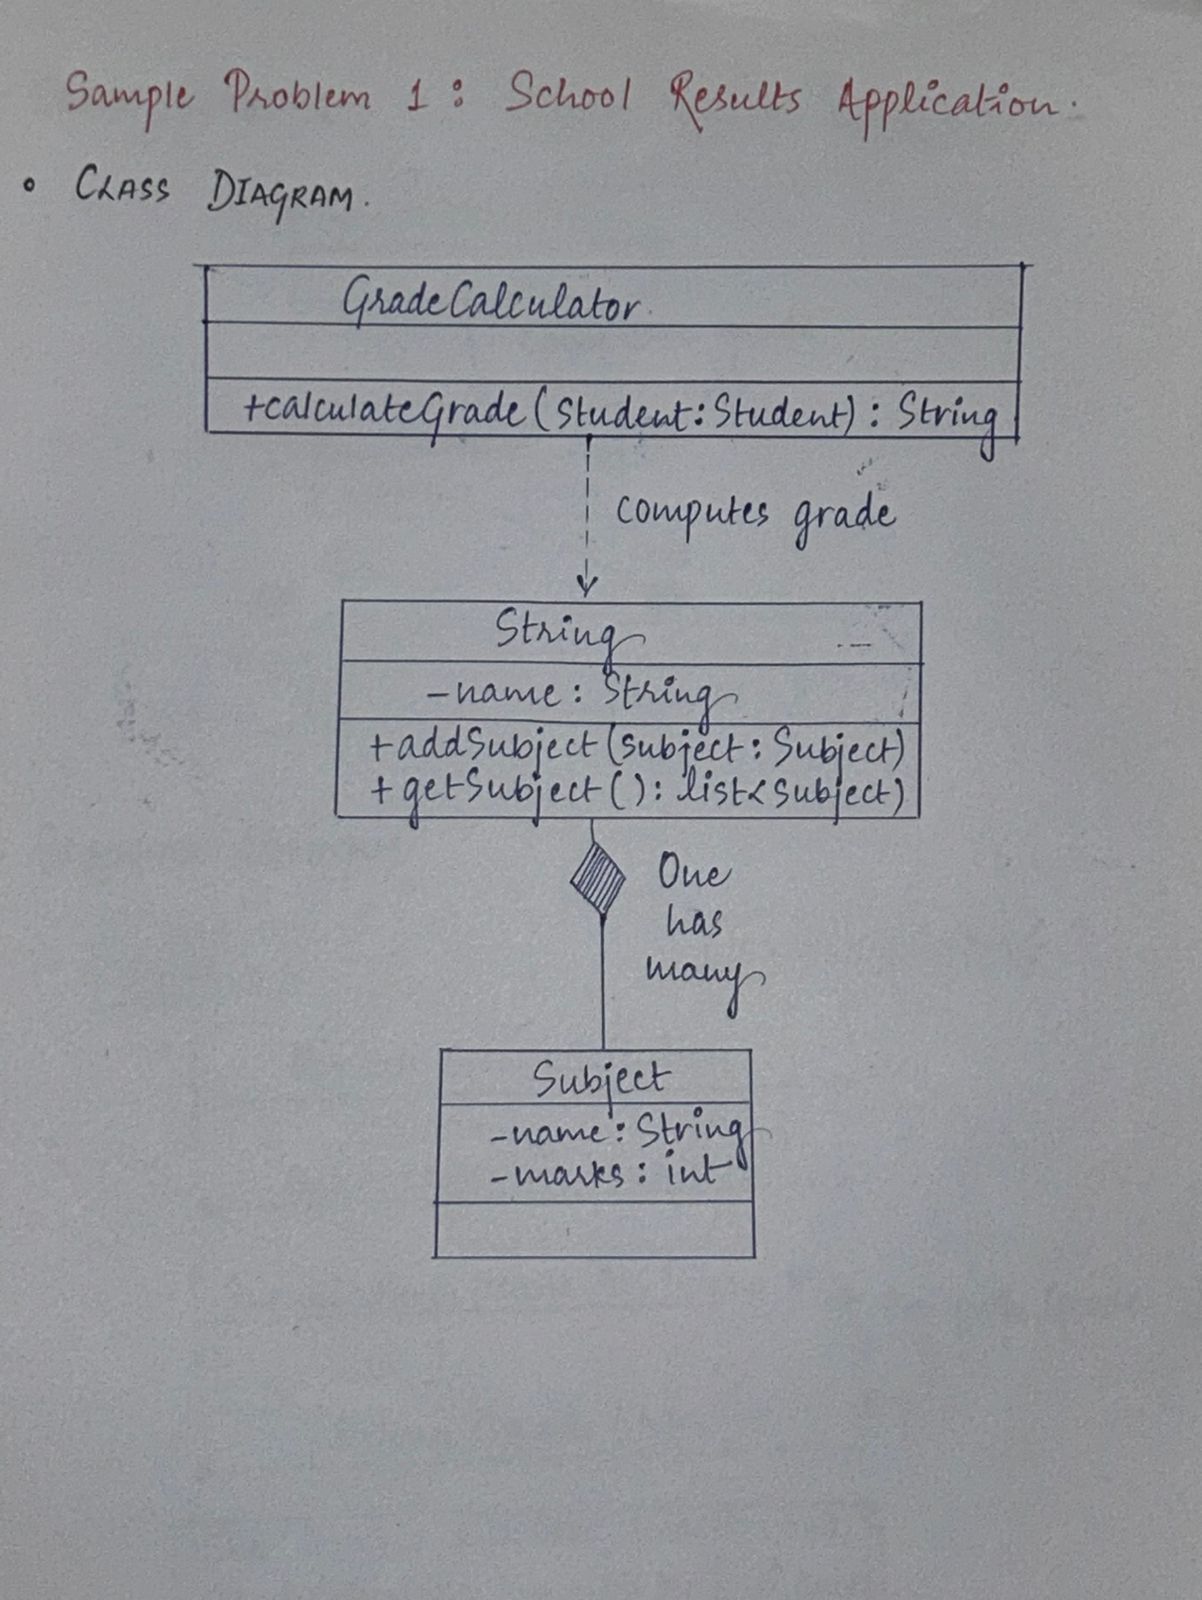 Sample Problem 1 : School Results Application.
• CLASS DIAGRAM.
GradeCalculator
+calculateGrade(Student:Student) : String
computes grade
String
-name: String
+addSubject(subject: Subject)
+getSubject(): list<Subject)
One
has
many
Subject
-name: String
-marks: int